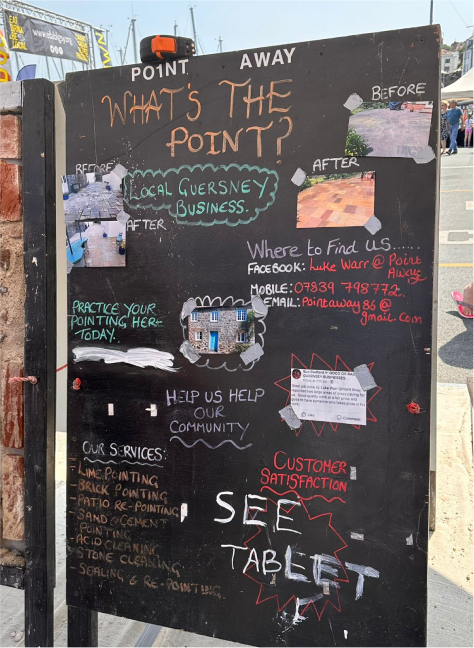 POINT AWAY
WHAT'S THE
POINT?
BEFORE
AFTER
BEFORE
AFTER
LOCAL GUERSNEY
BUSINESS.
Where to Find Us......
FACEBOOK: Luke Warr @ Point
Away
MOBILE: 07839 798772
EMAIL: Pointaway86@
gmail.com
PRACTICE YOUR
POINTING HERE
TODAY.
HELP US HELP
OUR
COMMUNITY
CUSTOMER
SATISFACTION
OUR SERVICES:
- LIME POINTING
- BRICK POINTING
- PATIO RE-POINTING
- SAND & CEMENT
POINTING
- ACID CLEANING
- STONE CLEANING
- SEALING & RE-POINTING.
SEE
TABLET